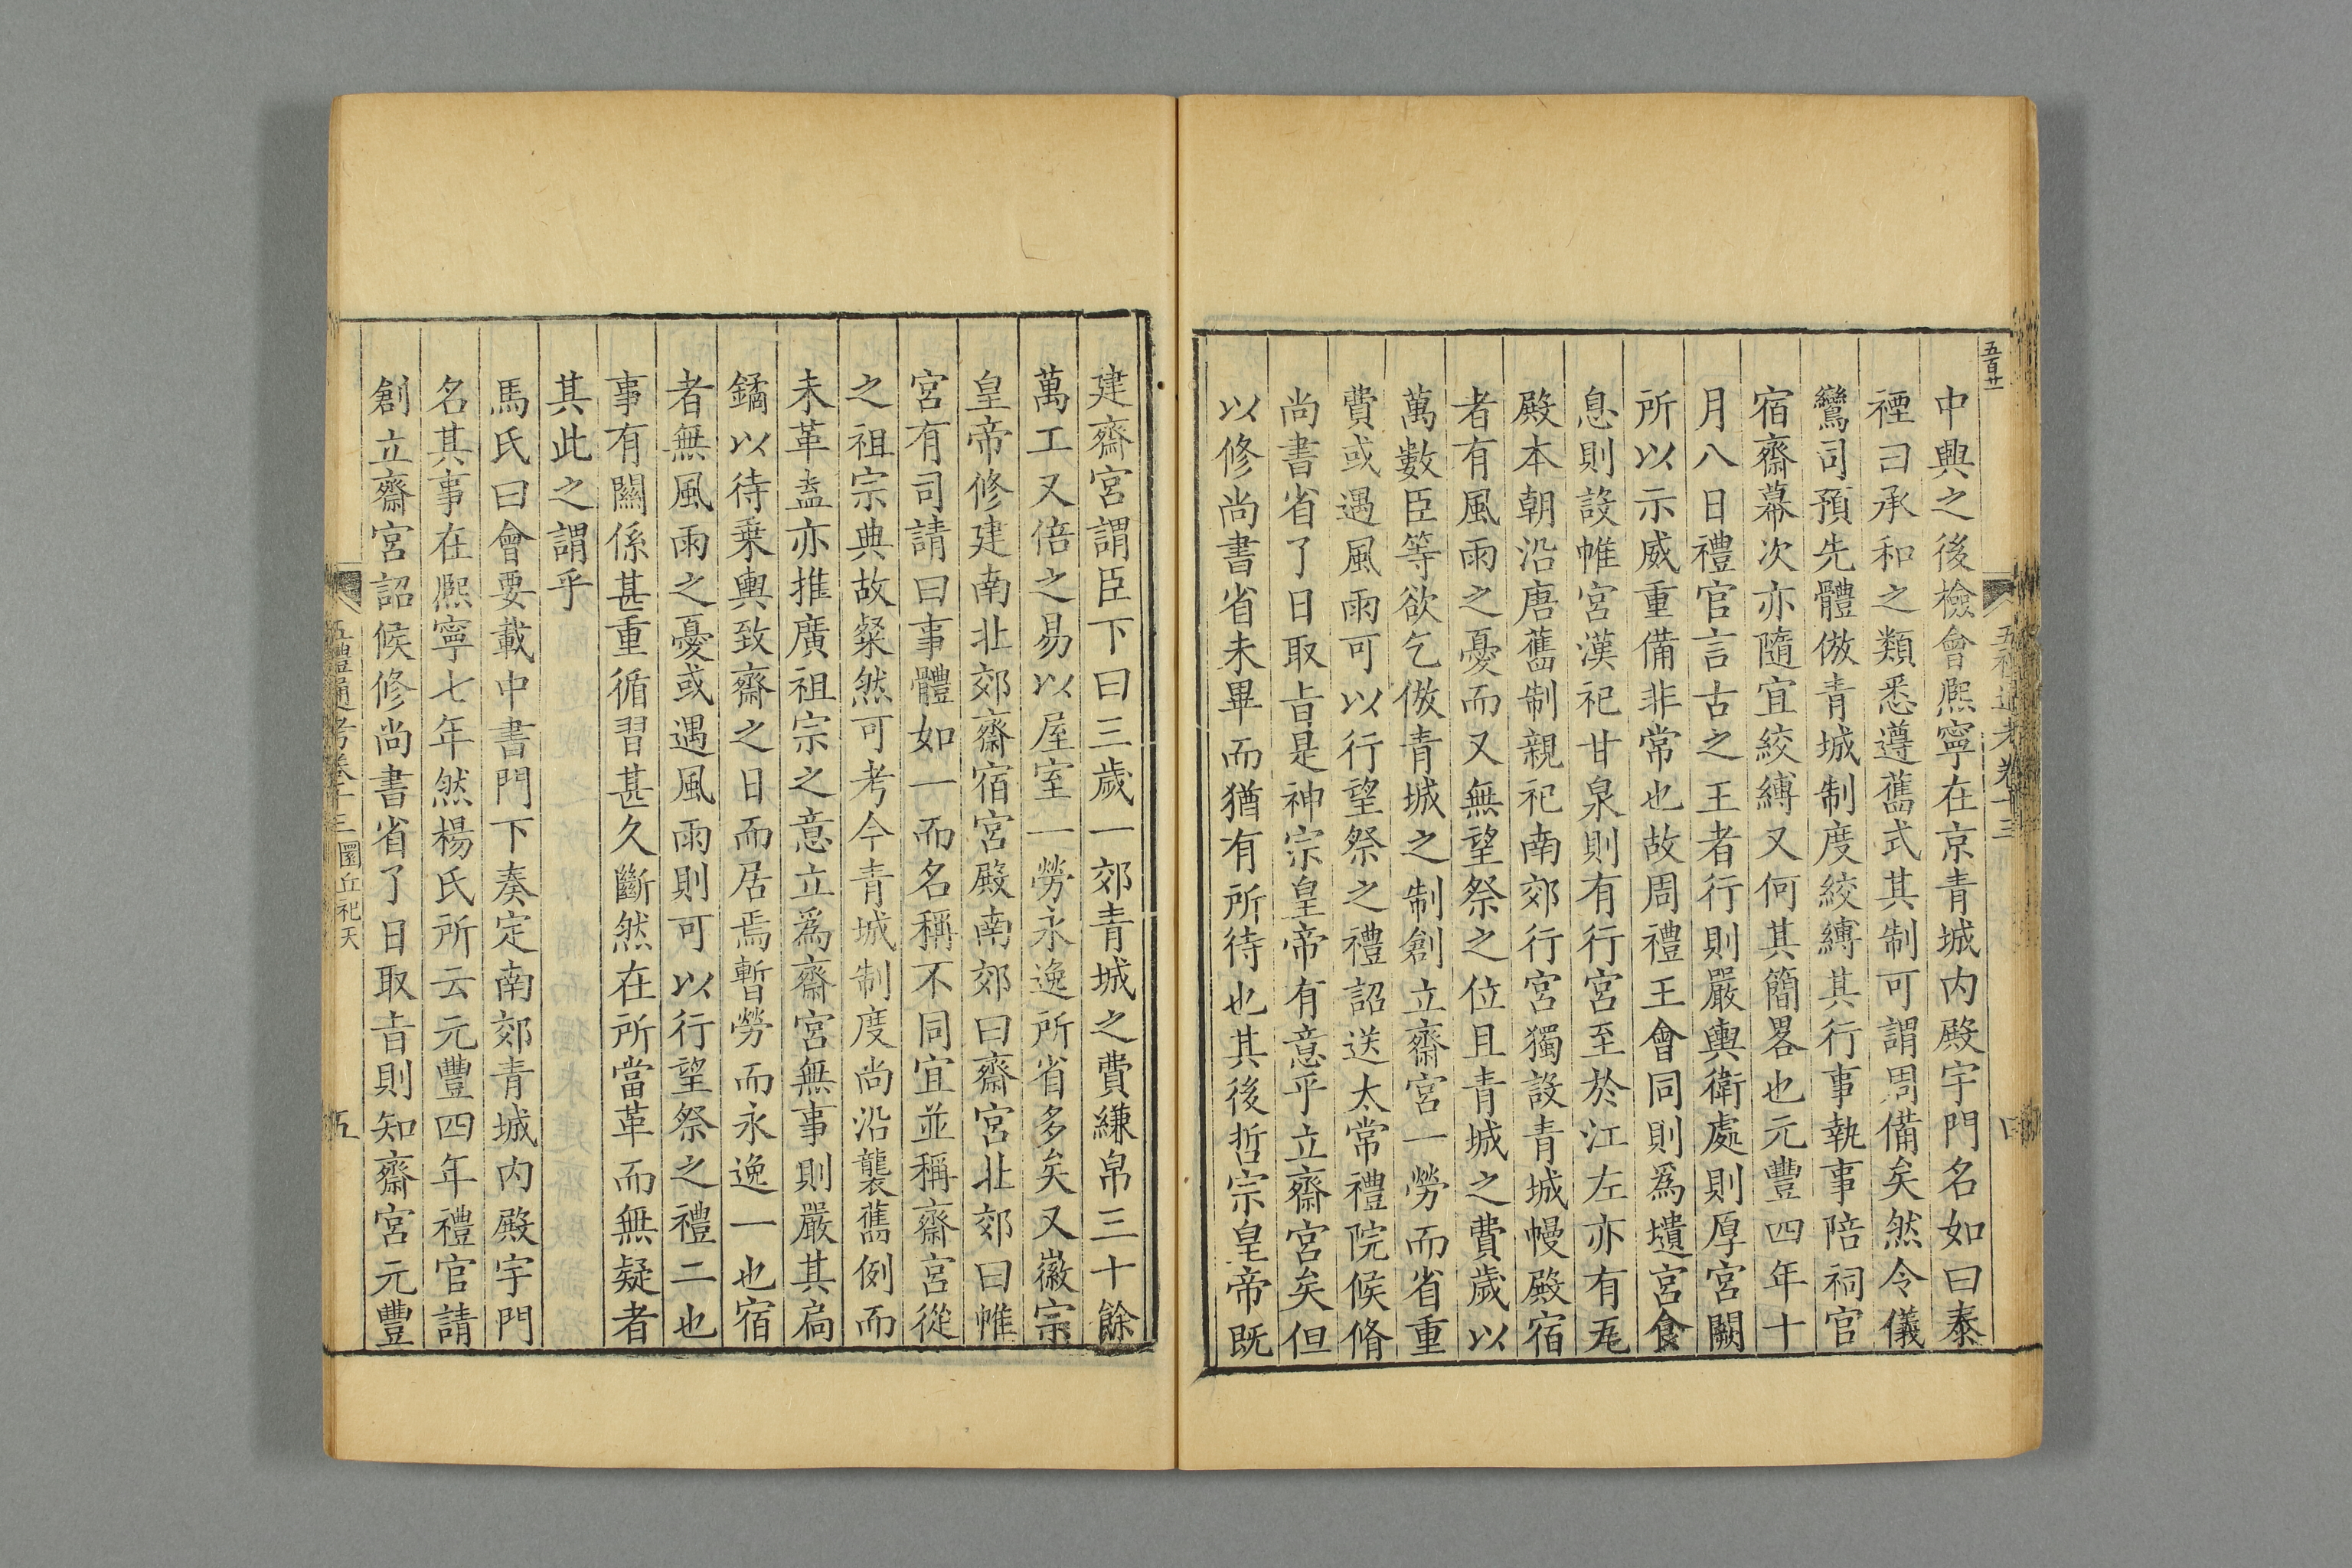 五百廿
五禮通考卷十三
四
中興之後檢會熈寧在京青城内殿宇門名如曰泰
禋曰承和之類悉遵舊式其制可謂周備矣然令儀
鸞司預先體倣青城制度絞縛其行事執事陪祠官
宿齋幕次亦隨宜絞縛又何其簡畧也元豐四年十
月八日禮官言古之王者行則嚴輿衛處則厚宮闕
所以示威重備非常也故周禮王會同則爲壝宮食
息則設帷宮漢祀甘泉則有行宮至於江左亦有瓦
殿本朝沿唐舊制親祀南郊行宮獨設青城幔殿宿
者有風雨之憂而又無望祭之位且青城之費歲以
萬數臣等欲乞倣青城之制創立齋宮一勞而省重
費或遇風雨可以行望祭之禮詔送太常禮院候脩
尚書省了日取㫖是神宗皇帝有意乎立齋宮矣但
以修尚書省未畢而猶有所待也其後哲宗皇帝既
建齋宮謂臣下曰三歲一郊青城之費縑帛三十餘
萬工又倍之易以屋室一勞永逸所省多矣又徽宗
皇帝修建南北郊齋宿宮殿南郊曰齋宮北郊曰帷
宮有司請曰事體如一而名稱不同宜並稱齋宮從
之祖宗典故粲然可考今青城制度尚沿襲舊例而
未革盍亦推廣祖宗之意立爲齋宮無事則嚴其扃
鐍以待乗輿致齋之日而居焉暫勞而永逸一也宿
者無風雨之憂或遇風雨則可以行望祭之禮二也
事有關係甚重循習甚久斷然在所當革而無疑者
其此之謂乎
馬氏曰會要載中書門下奏定南郊青城内殿宇門
名其事在熈寧七年然楊氏所云元豐四年禮官請
創立齋宮詔候修尚書省了日取㫖則知齋宮元豐
五禮通考卷十三 圜丘祀天
五